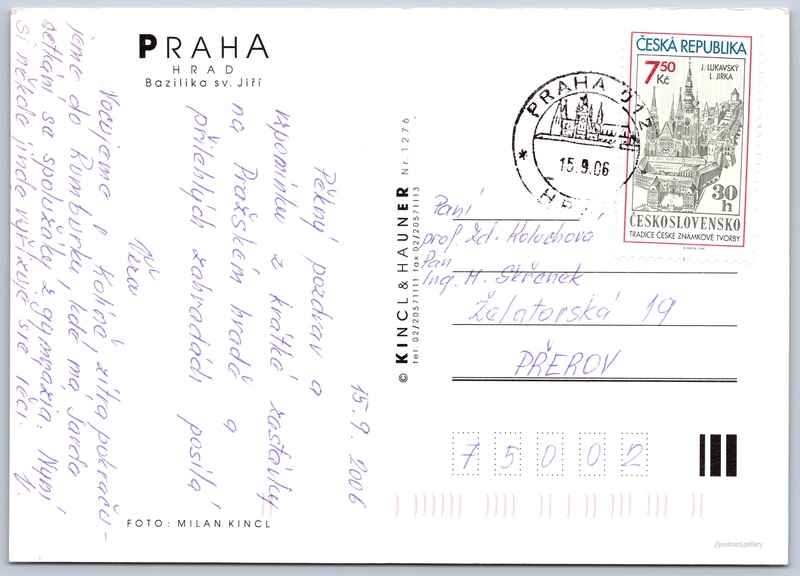 PRAHA
HRAD
Bazilika sv. Jiří
15. 9. 2006
Pěkný pozdrav a
vzpomínku z krátké zastávky
na Pražském hradě a
přilehlých zahradách posílá
Věra
Nocujeme v Kolíně, zítra pokraču-
jeme do Rumburku, kde má Jarda
setkání se spolužáky z gympazia. Nyní
si někde jinde vyřizuje své věci.
FOTO: MILAN KINCL
© KINCL & HAUNER Nr. 1276
tel. 02/20571111 fax 02/20571113
PRAHA 012
15.9.06
ČESKÁ REPUBLIKA
7,50 Kč
J. LUKAVSKÝ
L. JIRKA
30 h
ČESKOSLOVENSKO
TRADICE ČESKÉ ZNÁMKOVÉ TVORBY
Paní
prof. Zd. Koluchová
Pan
Ing. M. Skřenek
Želatovská 19
PŘEROV
75002
postcard.gallery